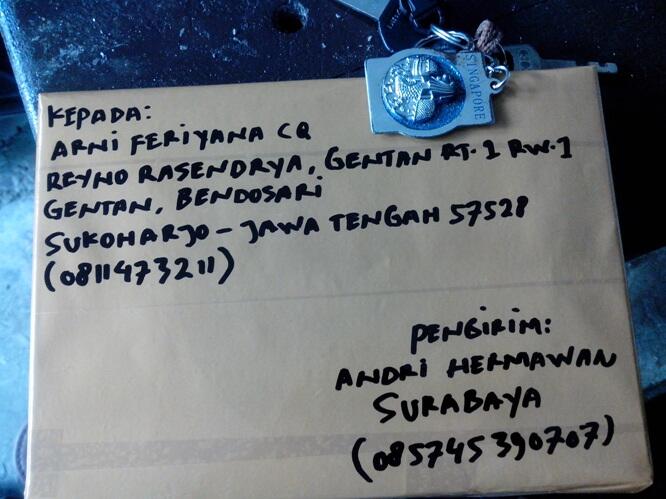 KEPADA:
ARNI FERIYANA CQ
REYNO RASENDRYA, GENTAN RT. 1 RW. 1
GENTAN, BENDOSARI
SUKOHARJO - JAWA TENGAH 57528
(0811473211)
PENGIRIM:
ANDRI HERMAWAN
SURABAYA
(085745390707)
SINGAPORE